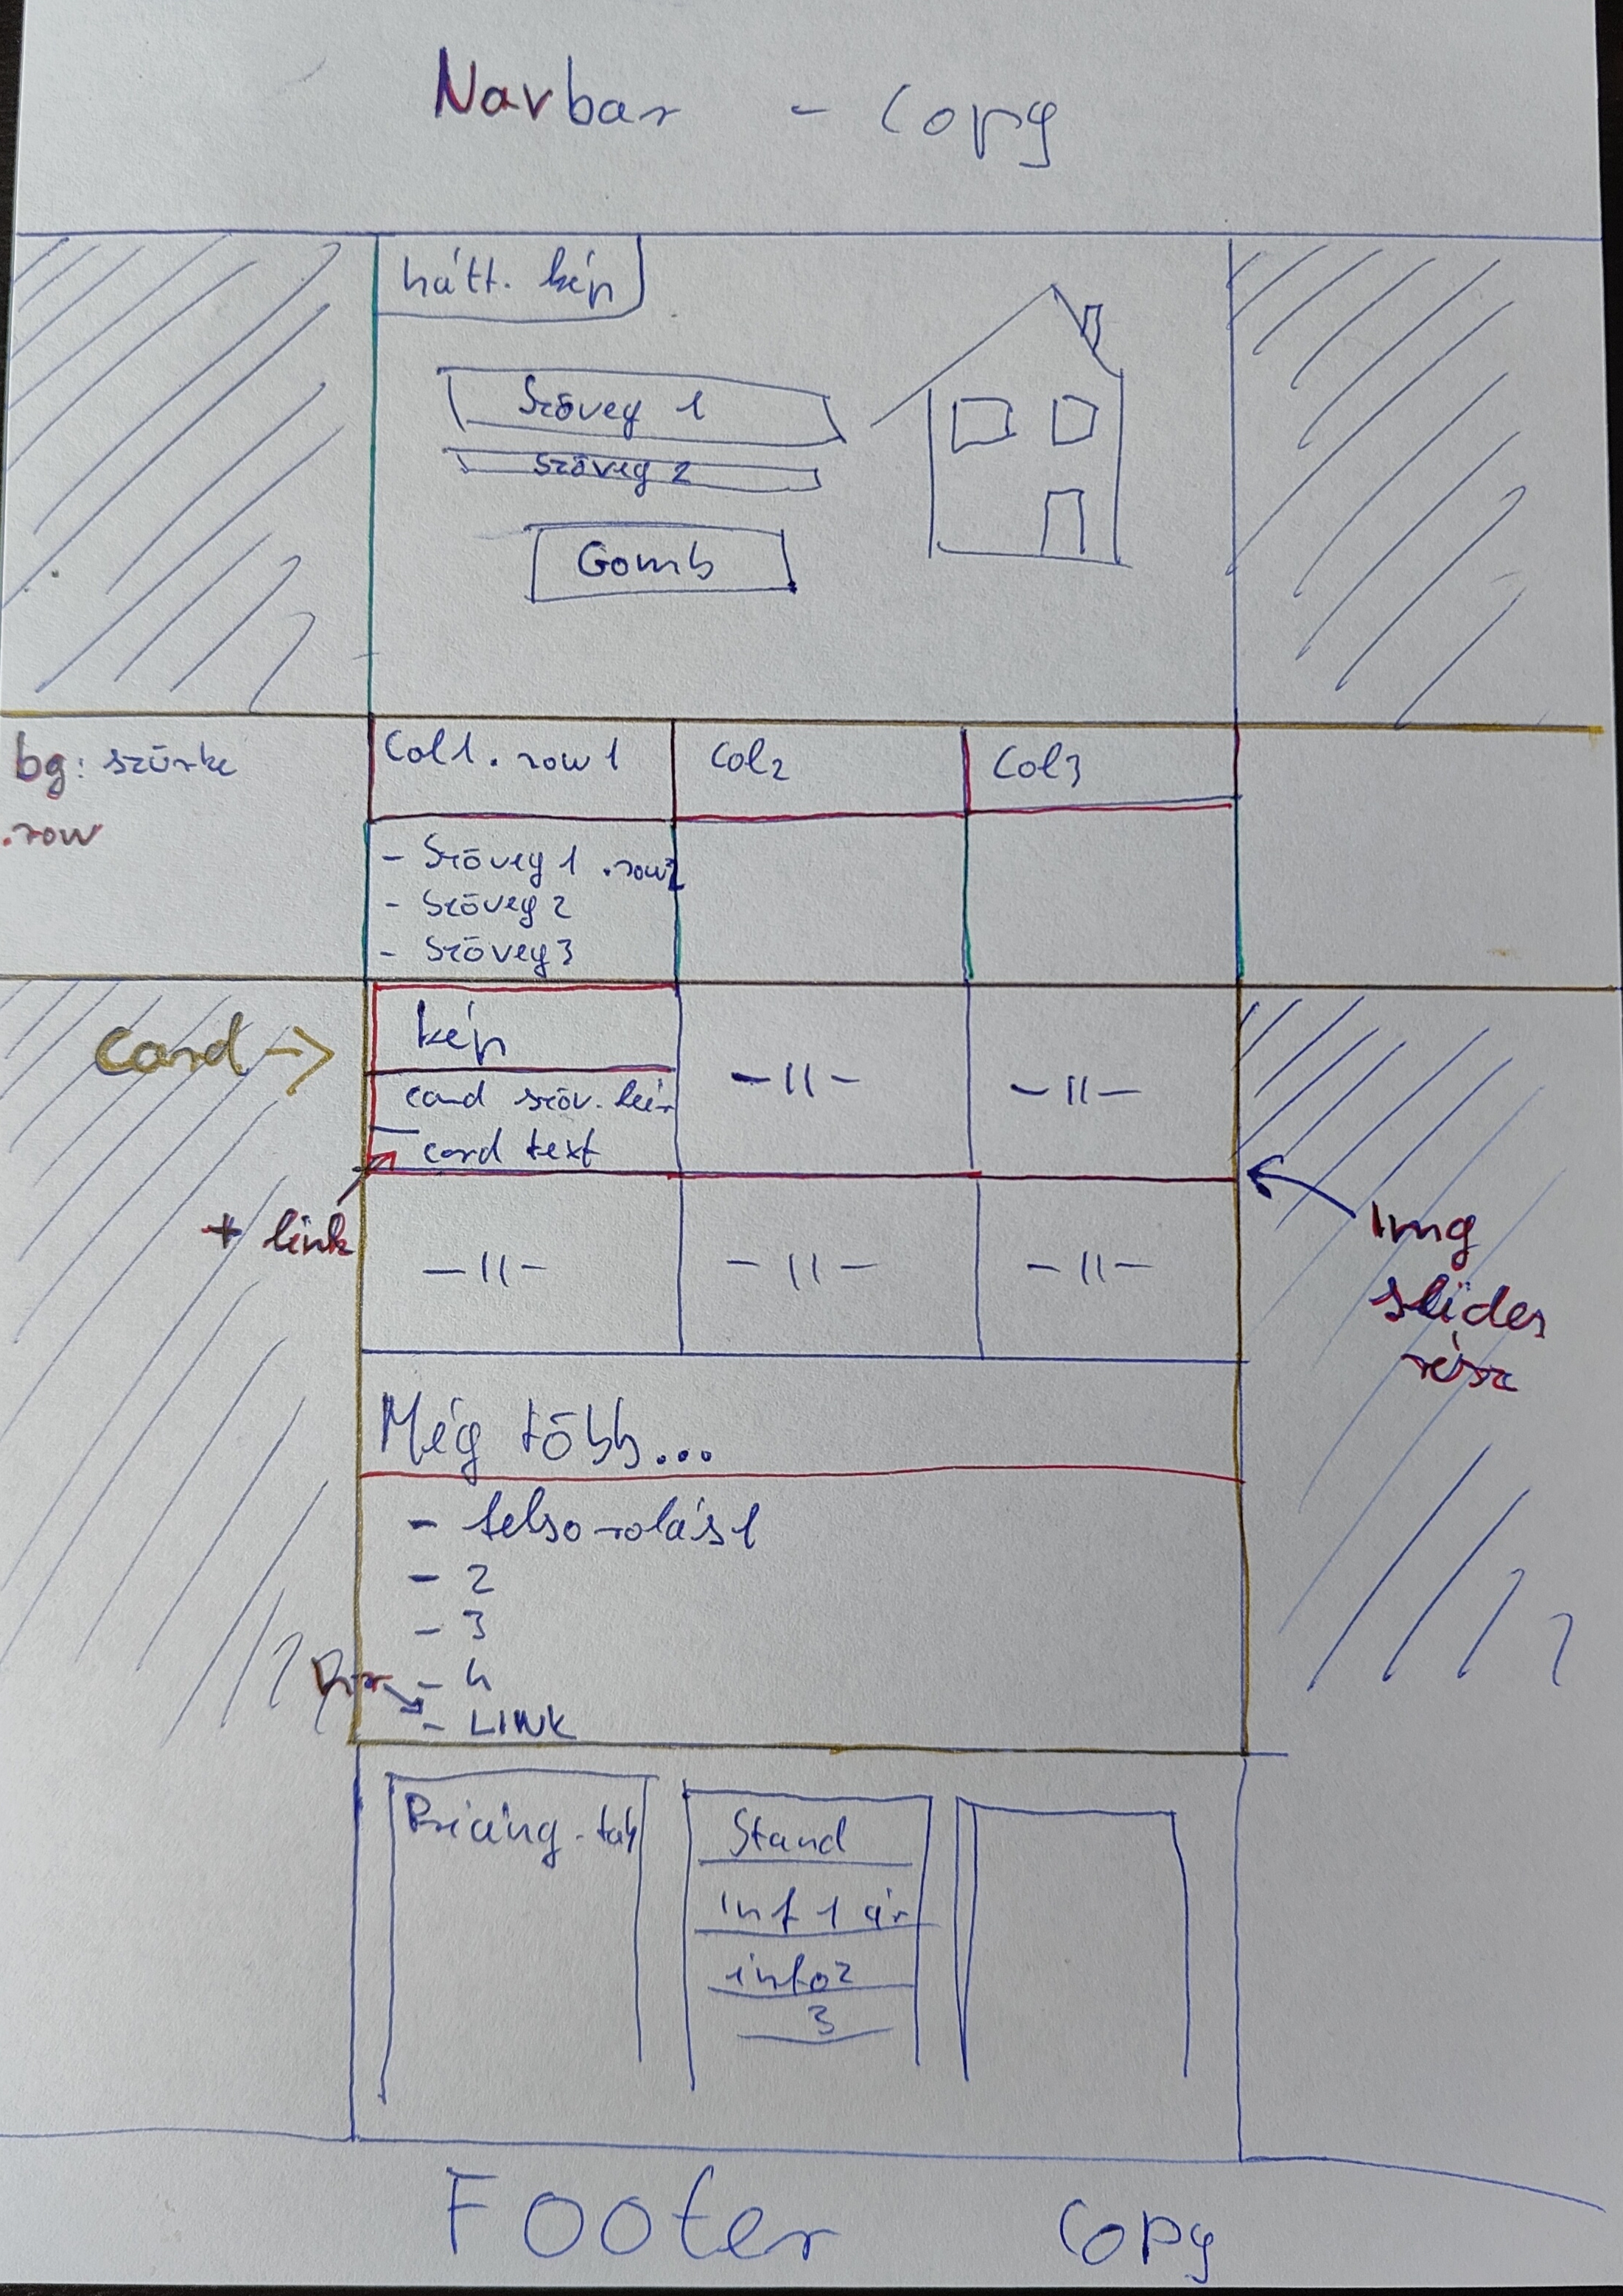 Navbar - Copy
hátt. kép
Szöveg 1
Szöveg 2
Gomb
bg: szürke
.row
Col1. row1
Col2
Col3
- Szöveg 1 .row2
- Szöveg 2
- Szöveg 3
Card →
kép
-11-
-11-
card szöv. leír
card text
+ link
-11-
-11-
-11-
Img
slider
rész
Még több...
- felsorolás1
- 2
- 3
- 4
- LINK
Pricing-tab
Stand
inf 1 ár
info2
3
Footer Copy